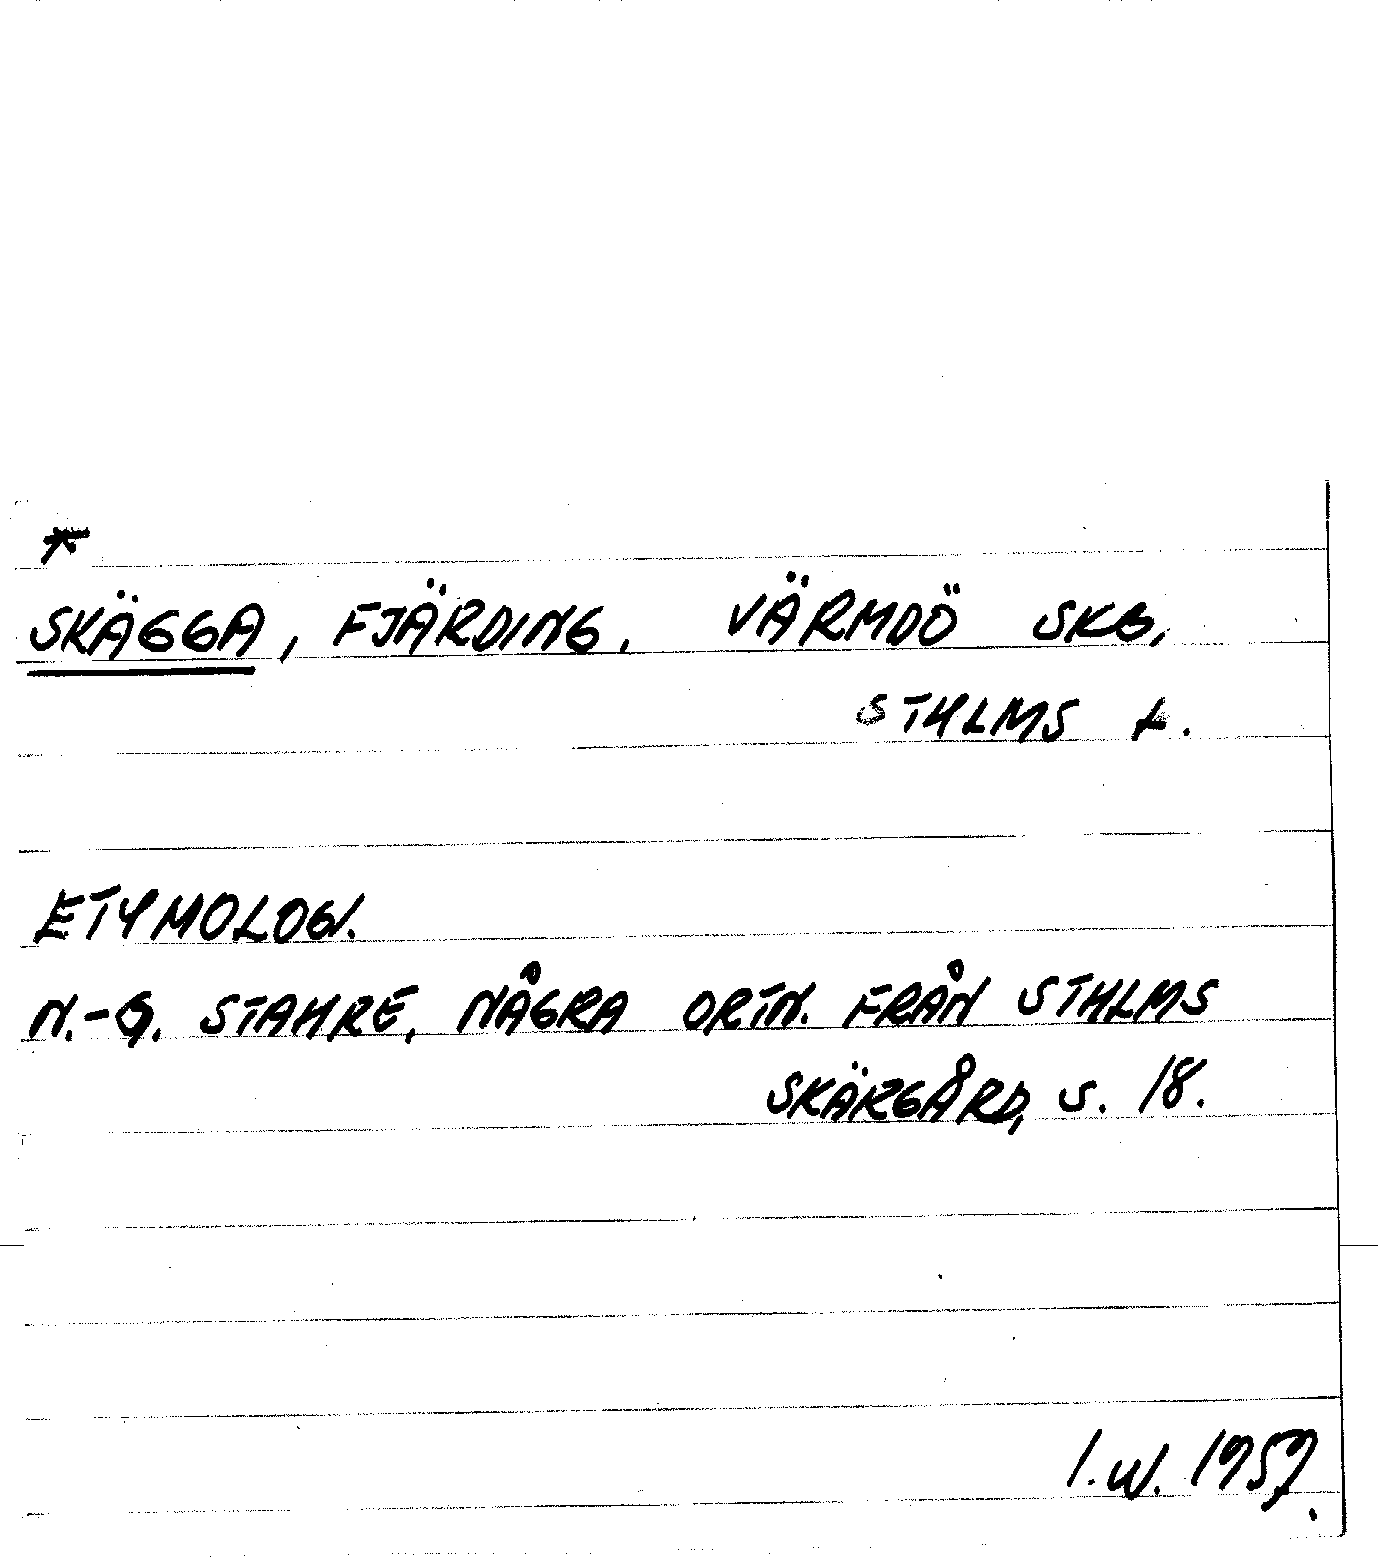 *
SKÄGGA, FJÄRDING. VÄRMDÖ SKG,
STHLMS L.
ETYMOLOGI.
N.-G. STAHRE, NÅGRA ORTN. FRÅN STHLMS
SKÄRGÅRD, S. 18.
I.W. 1959.